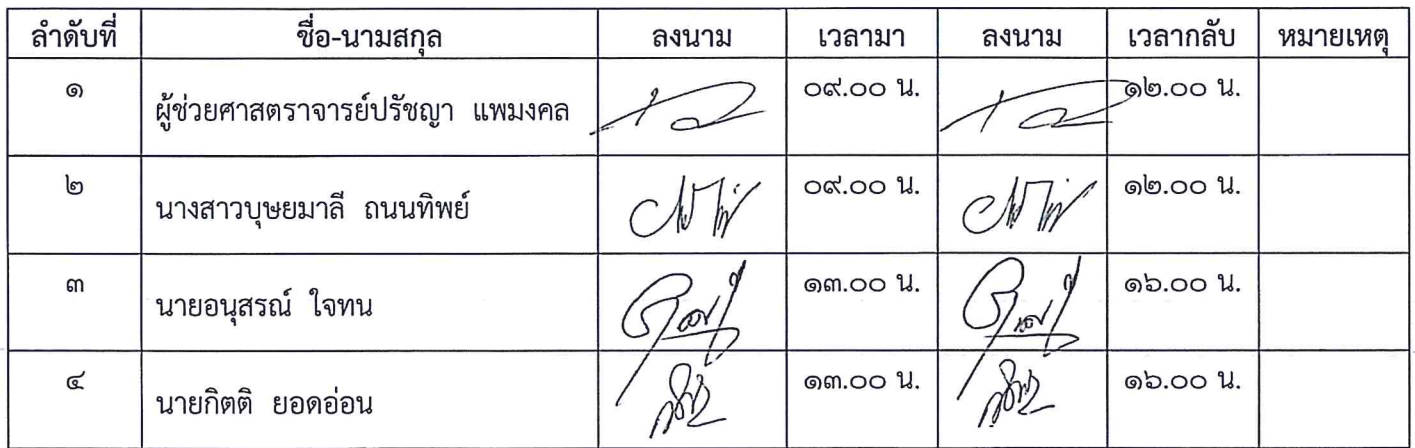 ลำดับที่ ชื่อ-นามสกุล ลงนาม เวลามา ลงนาม เวลากลับ หมายเหตุ
๑ ผู้ช่วยศาสตราจารย์ปรัชญา แพมงคล ๐๙.๐๐ น. ๑๒.๐๐ น.
๒ นางสาวบุษยมาลี ถนนทิพย์ ๐๙.๐๐ น. ๑๒.๐๐ น.
๓ นายอนุสรณ์ ใจทน ๑๓.๐๐ น. ๑๖.๐๐ น.
๔ นายกิตติ ยอดอ่อน ๑๓.๐๐ น. ๑๖.๐๐ น.